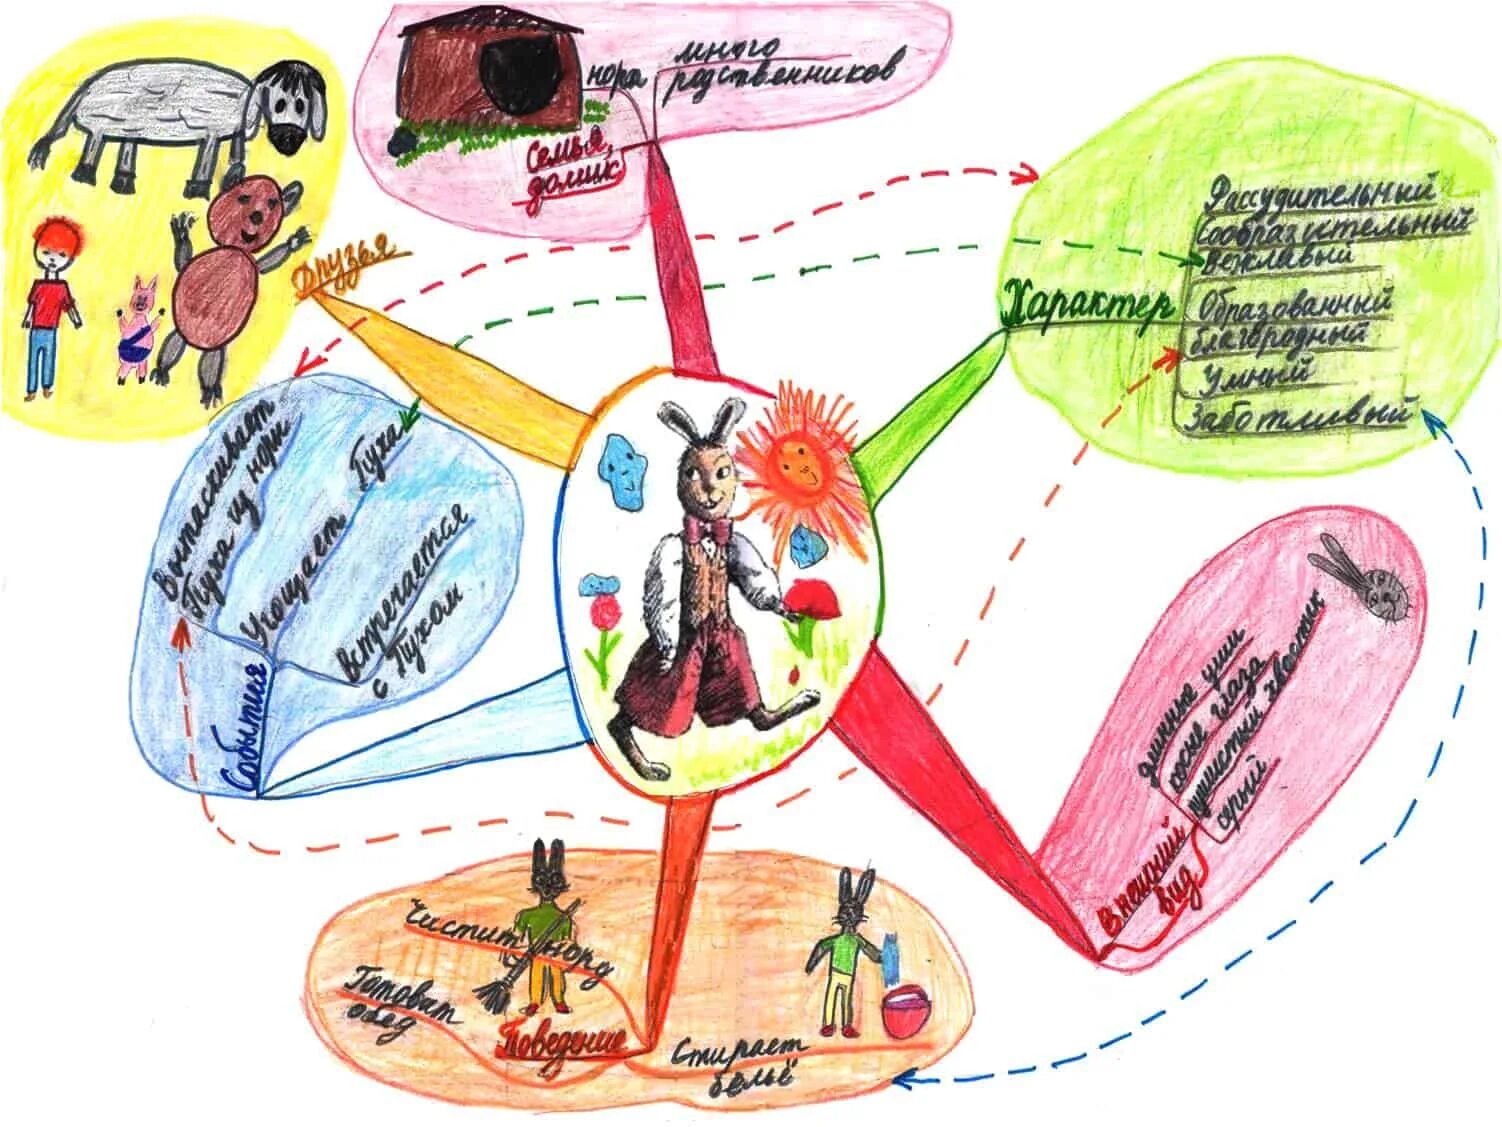 нора
много
родственников
Семья,
домик
Друзья
Характер
Рассудительный
Сообразительный
Вежлавый
Образованный
благородный
Умный
Заботливый
Вытаскивает
Пуха из норы
Угощает Пуха
Встречается
с Пухом
События
длинные уши
косые глаза
пушистый хвостик
серый
Внешний
вид
Чистит нору
Готовит
обед
Поведение
Стирает
бельё